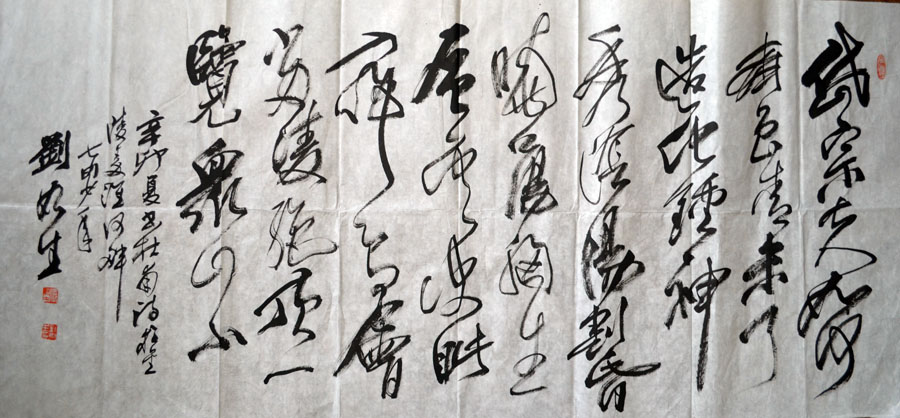 岱宗夫如何
齊魯青未了
造化鍾神
秀陰陽割昏
曉盪胸生
層雲決眥
入歸鳥會
當凌絕頂一
覽眾山小
辛卯夏書杜甫詩於金
陵
劉生